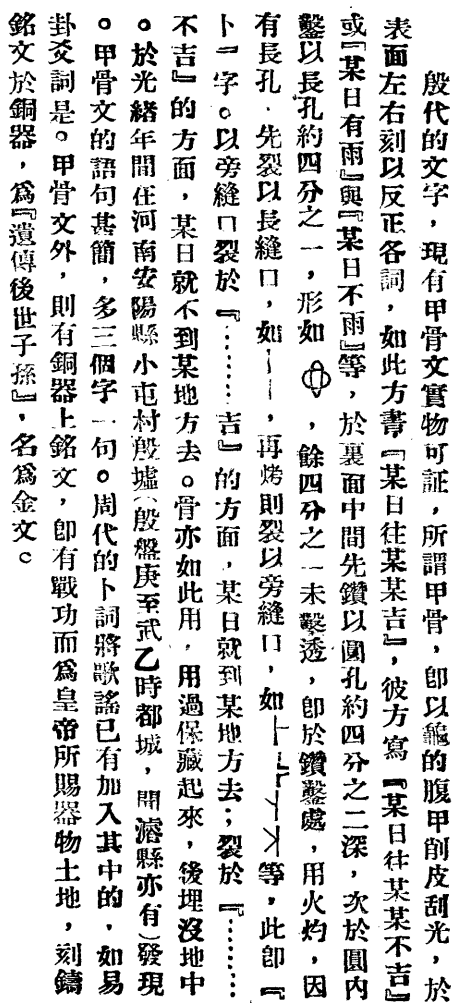 殷代的文字，現有甲骨文實物可証，所謂甲骨，卽以龜的腹甲削皮刮光，於
表面左右刻以反正各詞，如此方書『某日往某某吉』，彼方寫『某日往某某不吉』
或『某日有雨』與『某日不雨』等，於裏面中間先鑽以圓孔約四分之二深，次於圓內
鑿以長孔約四分之一，形如，餘四分之一未鑿透，卽於鑽鑿處，用火灼，因
有長孔，先裂以長縫口，如丨丨，再烤則裂以旁縫口，如等，此卽『
卜』字。以旁縫口裂於『……吉』的方面，某日就到某地方去；裂於『……
不吉』的方面，某日就不到某地方去。骨亦如此用，用過保藏起來，後埋沒地中
。於光緒年間在河南安陽縣小屯村殷墟（殷盤庚至武乙時都城，開濬縣亦有）發現
。甲骨文的語句甚簡，多三個字一句。周代的卜詞將歌謠已有加入其中的，如易
卦爻詞是。甲骨文外，則有銅器上銘文，卽有戰功而爲皇帝所賜器物土地，刻鑄
銘文於銅器，爲『遺傳後世子孫』，名爲金文。